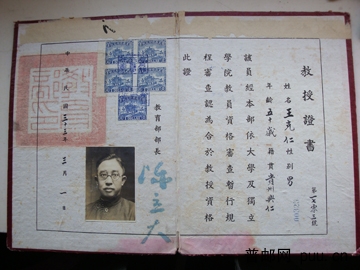 教授證書
姓名王克仁性別男
年齡五十歲籍貫貴州興仁
該員經本部依大學及獨立
學院教員資格審查暫行規
程審查認為合於教授資格
此證
教育部部長
陳立夫
中華民國三十三年三月一日